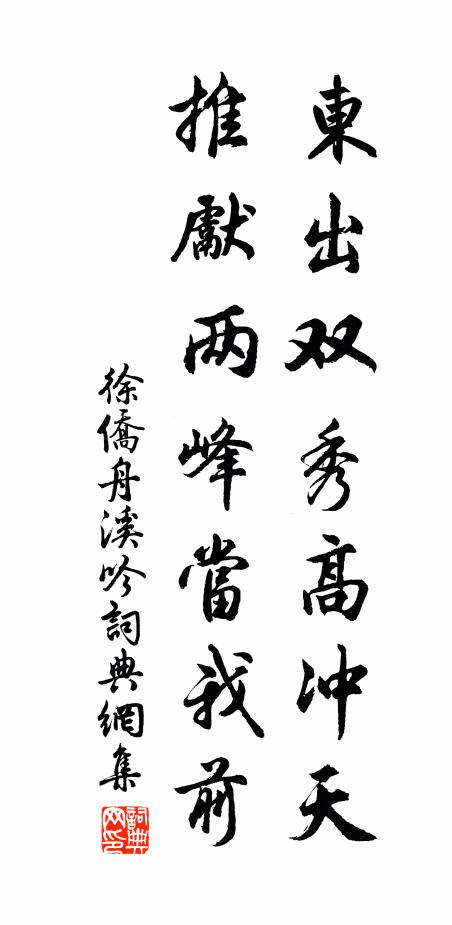 東出双秀高冲天
推獻两峰當我前
徐僑舟溪吟詞典網集
詞典网印